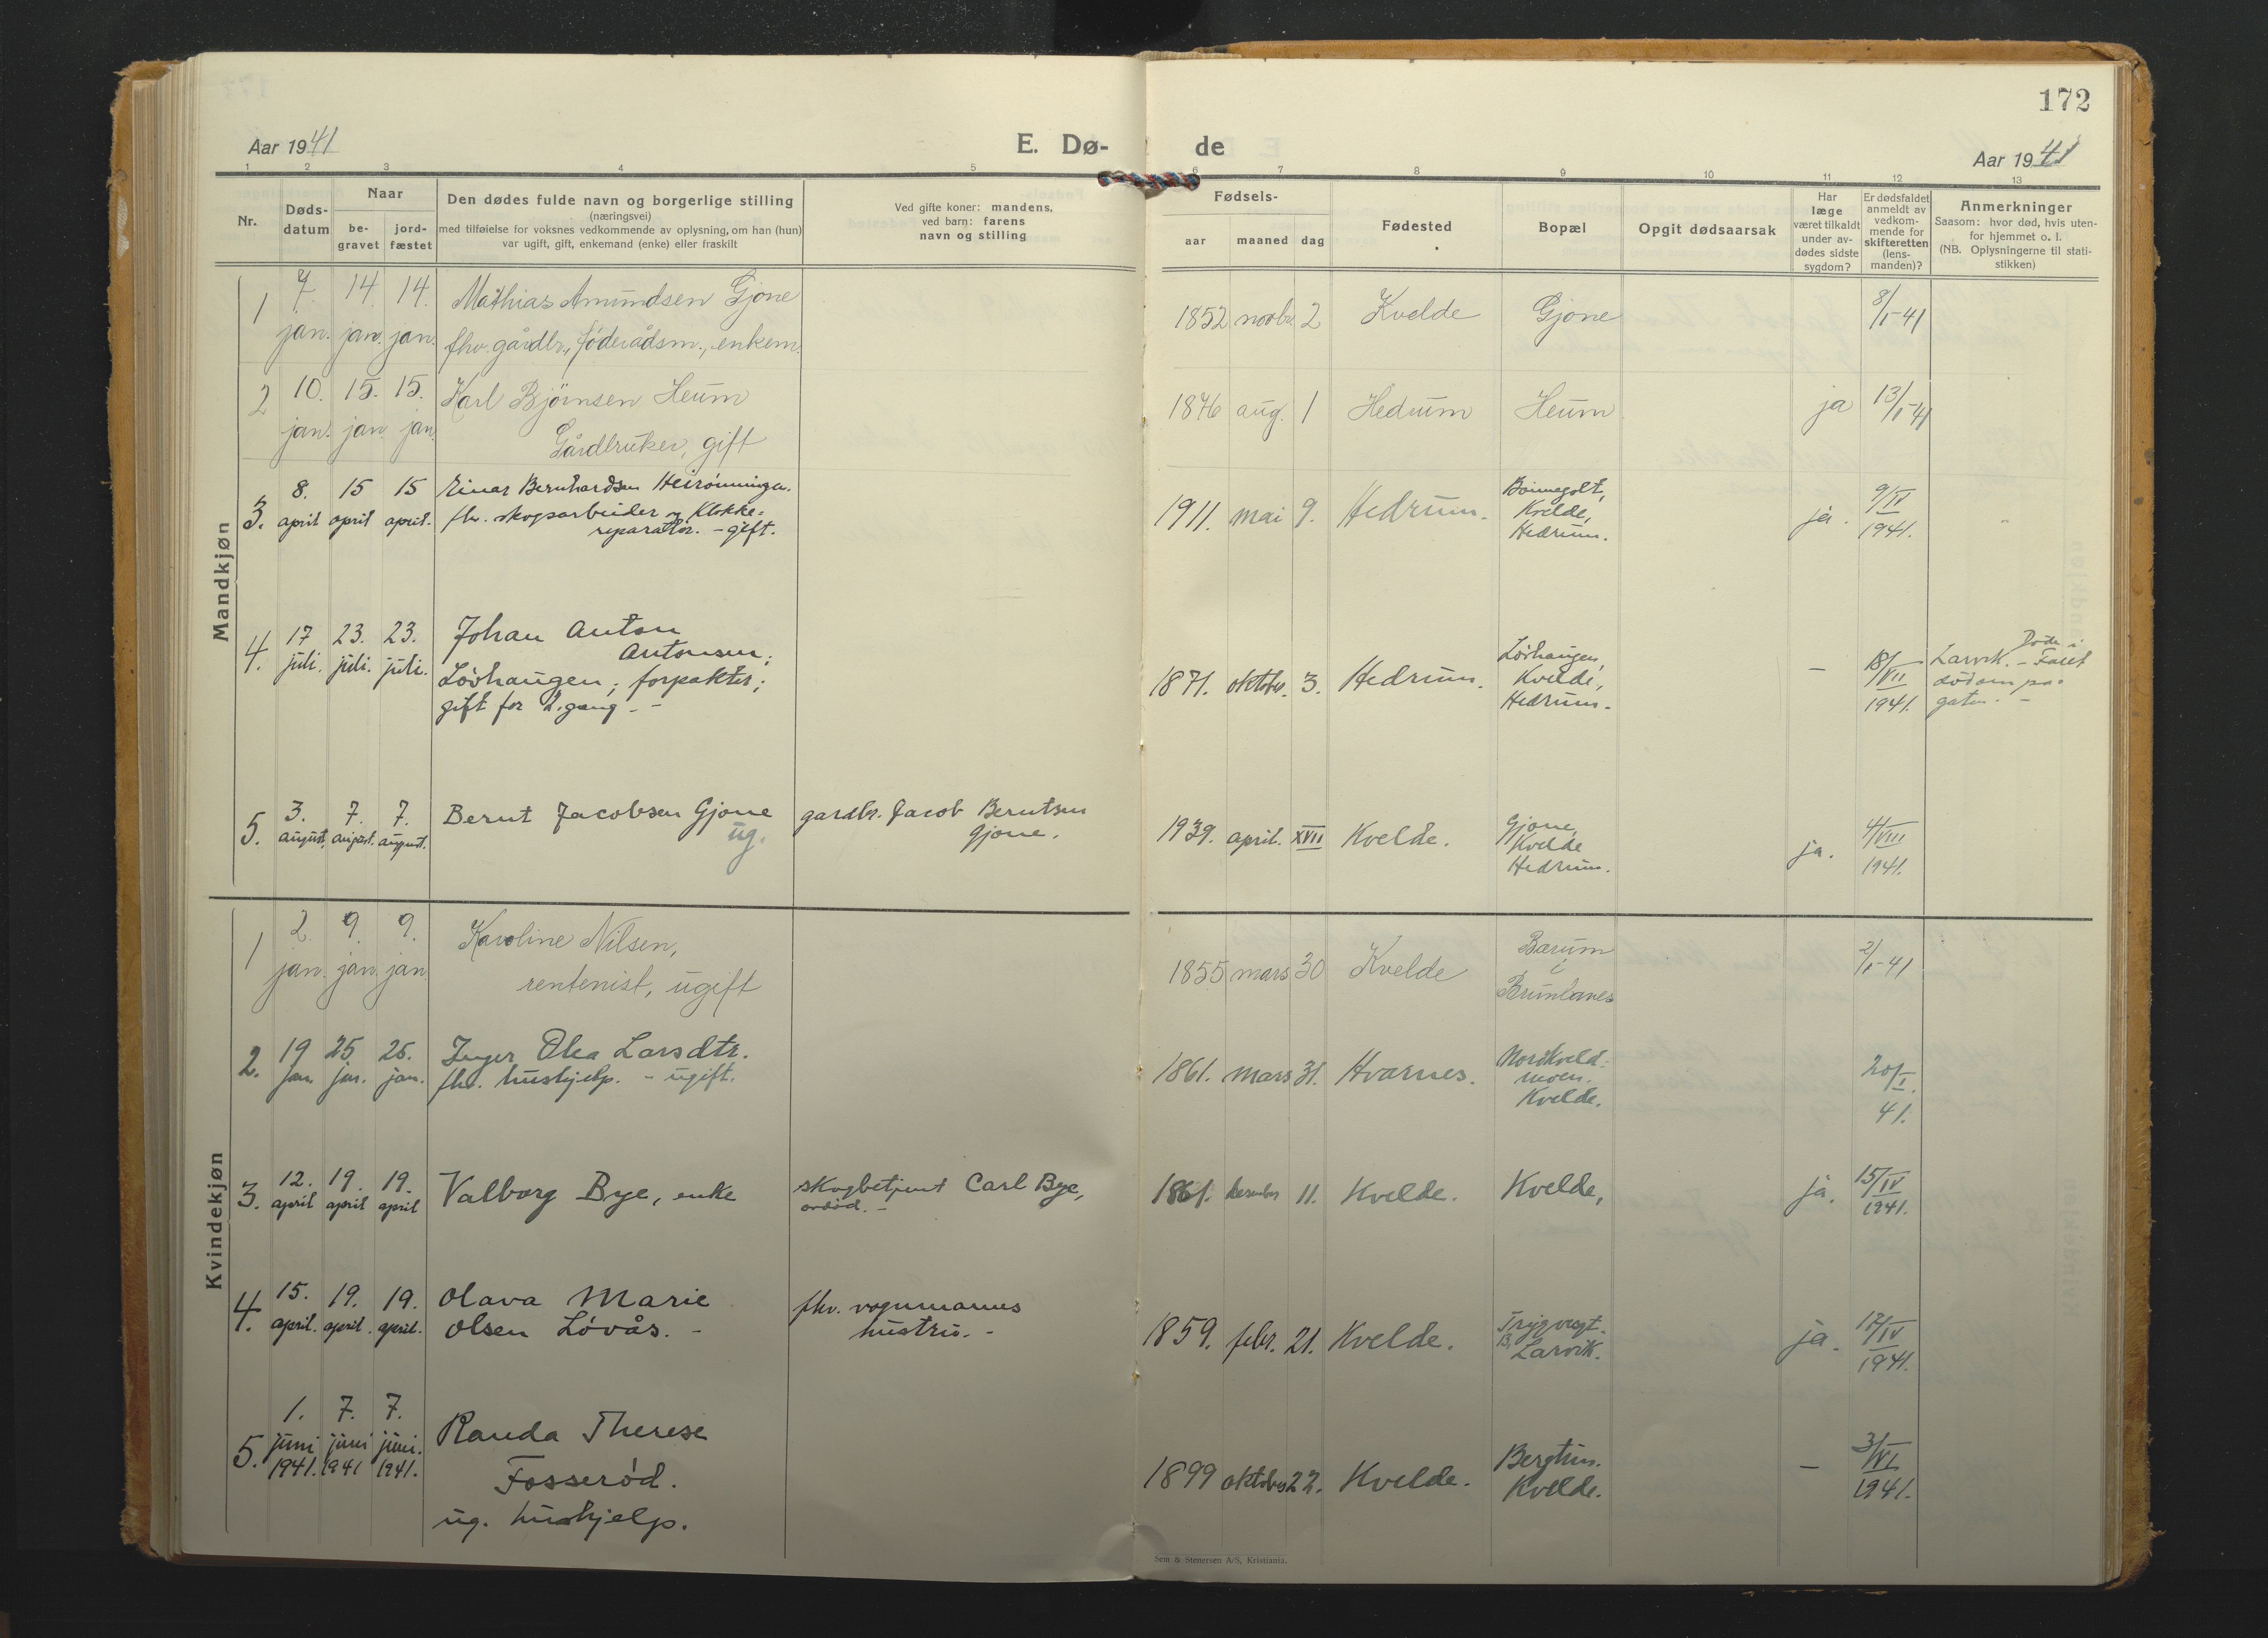 172
Aar 1941
E. Dø-
de
Aar 1941
1 2 3 4 5 6 7 8 9 10 11 12 13
Nr.
Døds-
datum
Naar
be-
gravet
jord-
fæstet
Den dødes fulde navn og borgerlige stilling
(næringsvei)
med tilføielse for voksnes vedkommende av oplysning, om han (hun)
var ugift, gift, enkemand (enke) eller fraskilt
Ved gifte koner: mandens,
ved barn: farens
navn og stilling
Fødsels-
aar maaned dag
Fødested
Bopæl
Opgit dødsaarsak
Har
læge
været tilkaldt
under av-
dødes sidste
sygdom?
Er dødsfaldet
anmeldt av
vedkom-
mende for
skifteretten
(lens-
manden)?
Anmerkninger
Saasom: hvor død, hvis uten-
for hjemmet o. l.
(NB. Oplysningerne til stati-
stikken)
Mandkjøn
1 7. jan. 14. jan. 14. jan. Mathias Amundsen Gjone
fhv. gårdbr., føderådsm., enkem.
1852 novbr. 2 Kvelde Gjone 8/1-41
2 10. jan. 15. jan. 15. jan. Karl Bjørnsen Heum
Gårdbruker, gift
1876 aug. 1 Hedrum Heum ja 13/1-41
3. 8. april 15 april 15 april. Einar Bernhardsen
fhv. skogsarbeider og Klokke=
reparatør. - gift.
1911. mai 9. Hedrum.
Kvelde,
Hedrum.
ja. 9/IV
1941.
4. 17 juli. 23. juli. 23. juli. Johan Anton
Antonsen;
Løvhaugen; forpakter;
gift for 2. gang. -
1871. oktober. 3. Hedrum.
Løvhaugen,
Kvelde,
Hedrum.
- 18/VII
1941.
Døde i
Larvik. - Falt
død om på
gaten. -
5. 3. august. 7. august. 7. august. Bernt Jacobsen Gjone
ug.
gardbr. Jacob Berntsen
Gjone.
1939. april. XVII Kvelde.
Gjone,
Kvelde
Hedrum.
ja. 4/VIII
1941.
Kvindekjøn
1 2. jan. 9. jan. 9. jan Karoline Nilsen,
rentenist, ugift
1855 mars 30 Kvelde
Bærum
i
Brunlanes
2/1-41
2. 19 jan. 25 jan. 25. jan. Inger Olea Larsdtr.
fhv. hushjelp. - ugift.
1861. mars 31. Hvarnes.
Nordkveld-
moen.
Kvelde.
20/I
41.
3. 12. april 19. april 19. april Valborg Bye, enke
skogbetjent Carl Bye,
avdød. -
1861. desember 11. Kvelde. Kvelde, ja. 15/IV
1941.
4. 15. april. 19. april. 19. april. Olava Marie
Olsen Løvås. -
fhv. vognmanns
hustru. -
1859. febr. 21. Kvelde.
Larvik.
ja. 17/IV
1941.
5. 1. juni 1941. 7. juni 1941 7. juni. 1941. Randa Therese
Fosserød.
ug. hushjelp.
1899 oktober 22. Kvelde.
Bergtun.
Kvelde.
- 3/VI
1941.
Sem & Stenersen A/S, Kristiania.